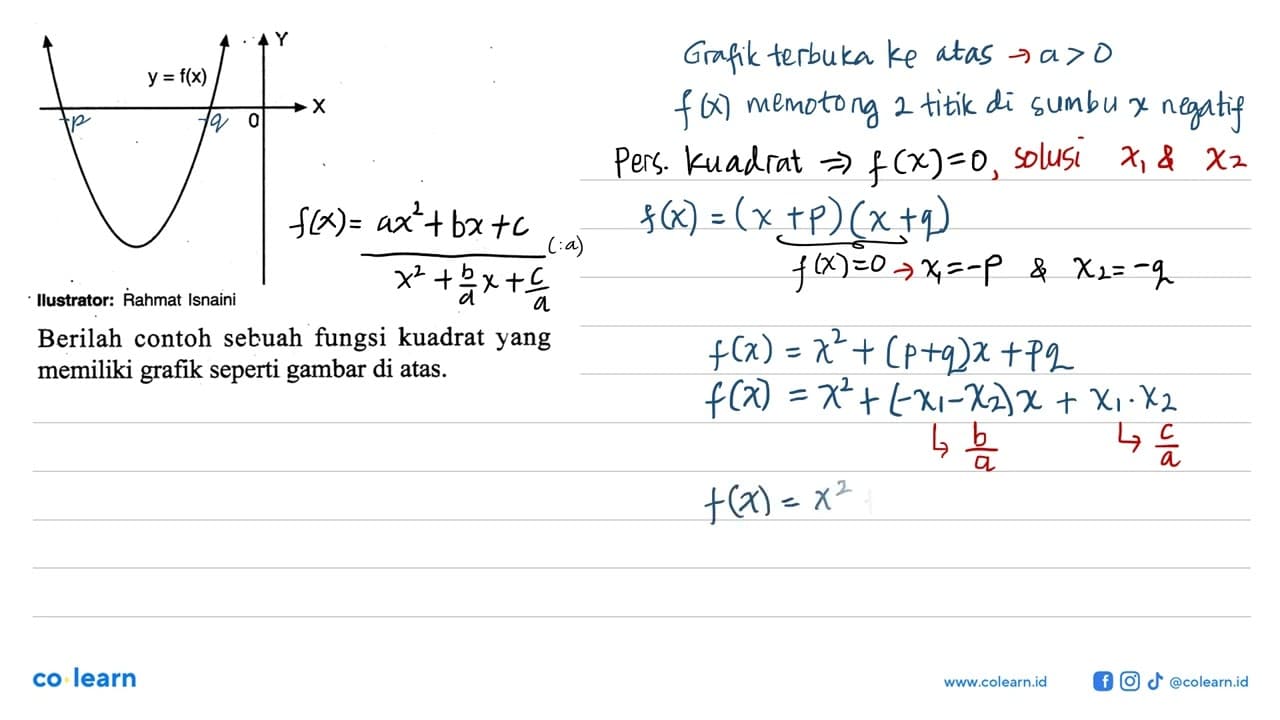 Y
y = f(x)
X
-p -q 0
Ilustrator: Rahmat Isnaini
Berilah contoh sebuah fungsi kuadrat yang
memiliki grafik seperti gambar di atas.
f(x) = ax² + bx + c
(:a)
x² + b/a x + c/a
Grafik terbuka ke atas → a > 0
f(x) memotong 2 titik di sumbu x negatif
Pers. kuadrat ⇒ f(x)=0, solusi x₁ & x₂
f(x) = (x + p)(x + q)
f(x)=0 → x₁=-p & x₂=-q
f(x) = x² + (p+q)x + pq
f(x) = x² + (-x₁-x₂)x + x₁.x₂
↳ b/a ↳ c/a
f(x) = x²
co·learn
www.colearn.id @colearn.id